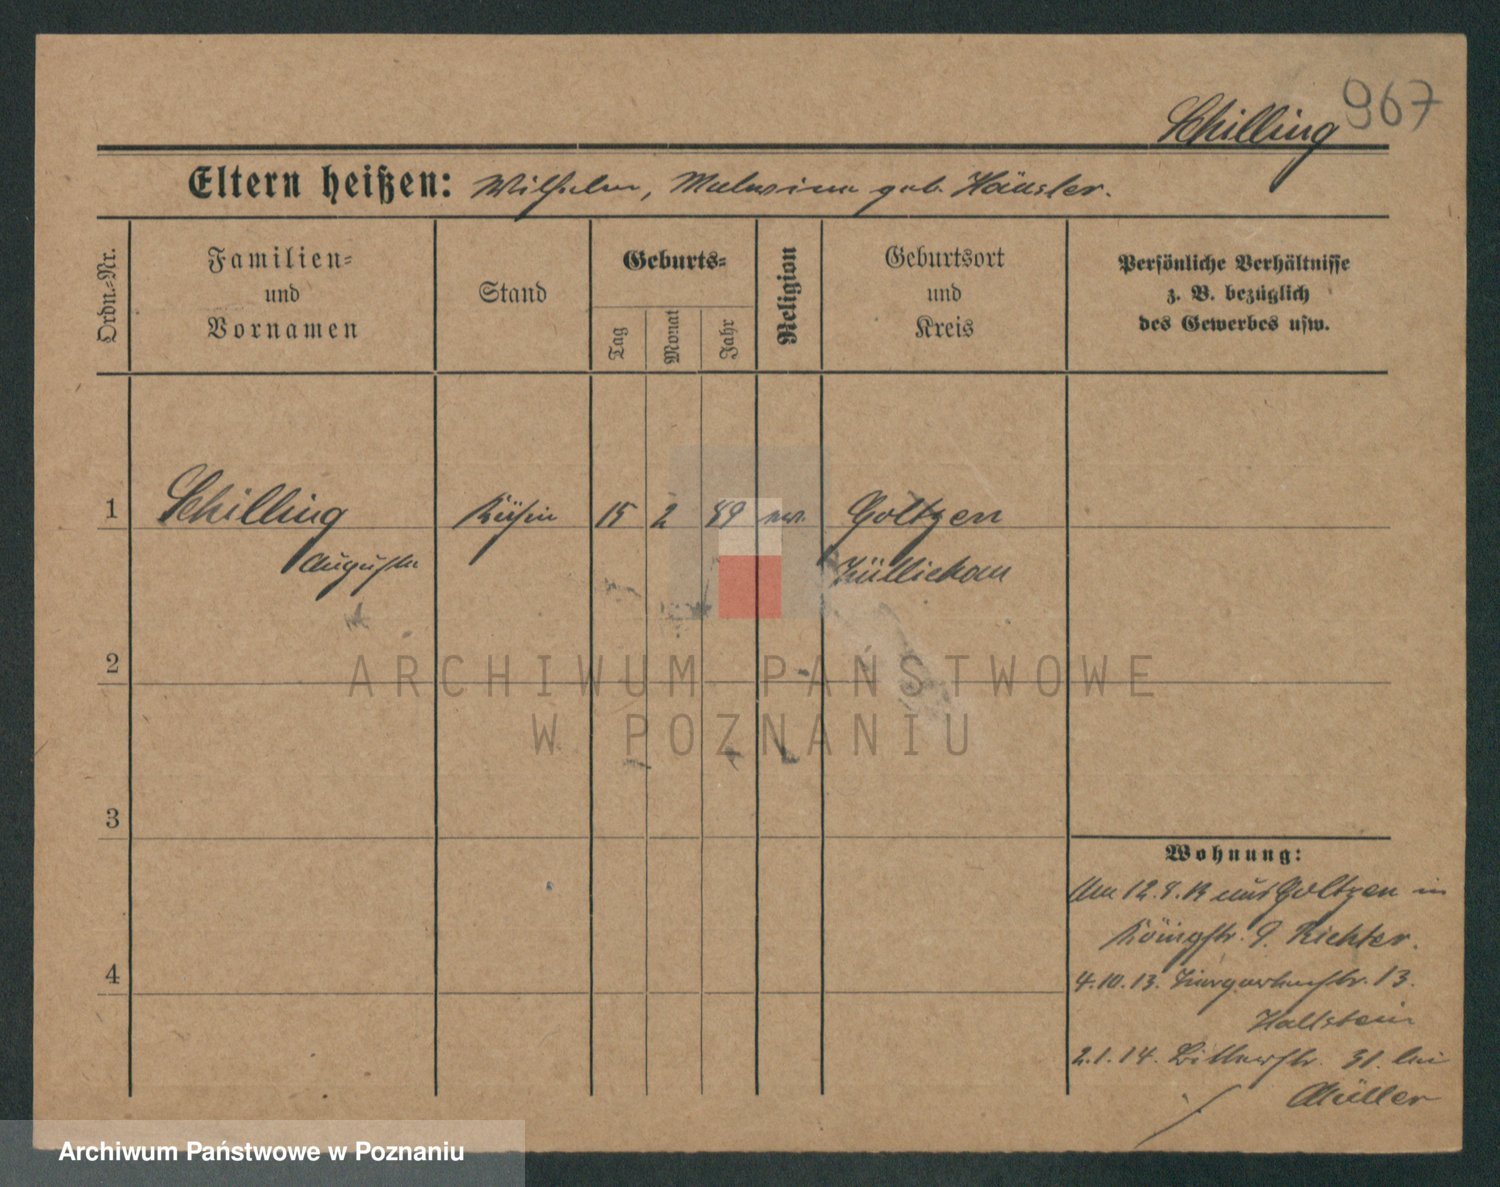 967
Schilling
Eltern heißen: Wilhelm, Malwina geb. Häusler.
Ordn.-Nr.
Familien-
und
Vornamen
Stand
Geburts-
Tag
Monat
Jahr
Religion
Geburtsort
und
Kreis
Persönliche Verhältnisse
z. B. bezüglich
des Gewerbes usw.
1
Schilling
Auguste
Köchin
15
2
89
ev.
Goltzen
Züllichau
2
3
4
Wohnung:
Am 12.8.13 aus Goltzen in
Königstr. 9. Richter.
4.10.13. 13.
Hallstein
2.1.14. 31. bei
Müller
ARCHIWUM PAŃSTWOWE
W POZNANIU
Archiwum Państwowe w Poznaniu